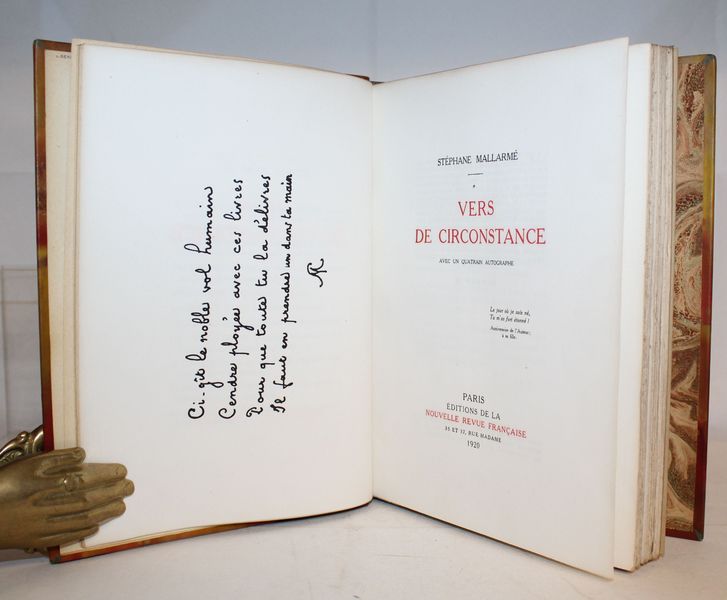 Ci-gît le noble vol humain
Cendre ployée avec ces livres
Pour que toute tu la délivres
Il faut en prendre un dans ta main
STÉPHANE MALLARMÉ
VERS
DE CIRCONSTANCE
AVEC UN QUATRAIN AUTOGRAPHE
Le jour où je suis né,
Tu m'as fort étonné !
Anniversaire de l'Auteur,
à sa fille.
PARIS
ÉDITIONS DE LA
NOUVELLE REVUE FRANÇAISE
35 ET 37, RUE MADAME
1920